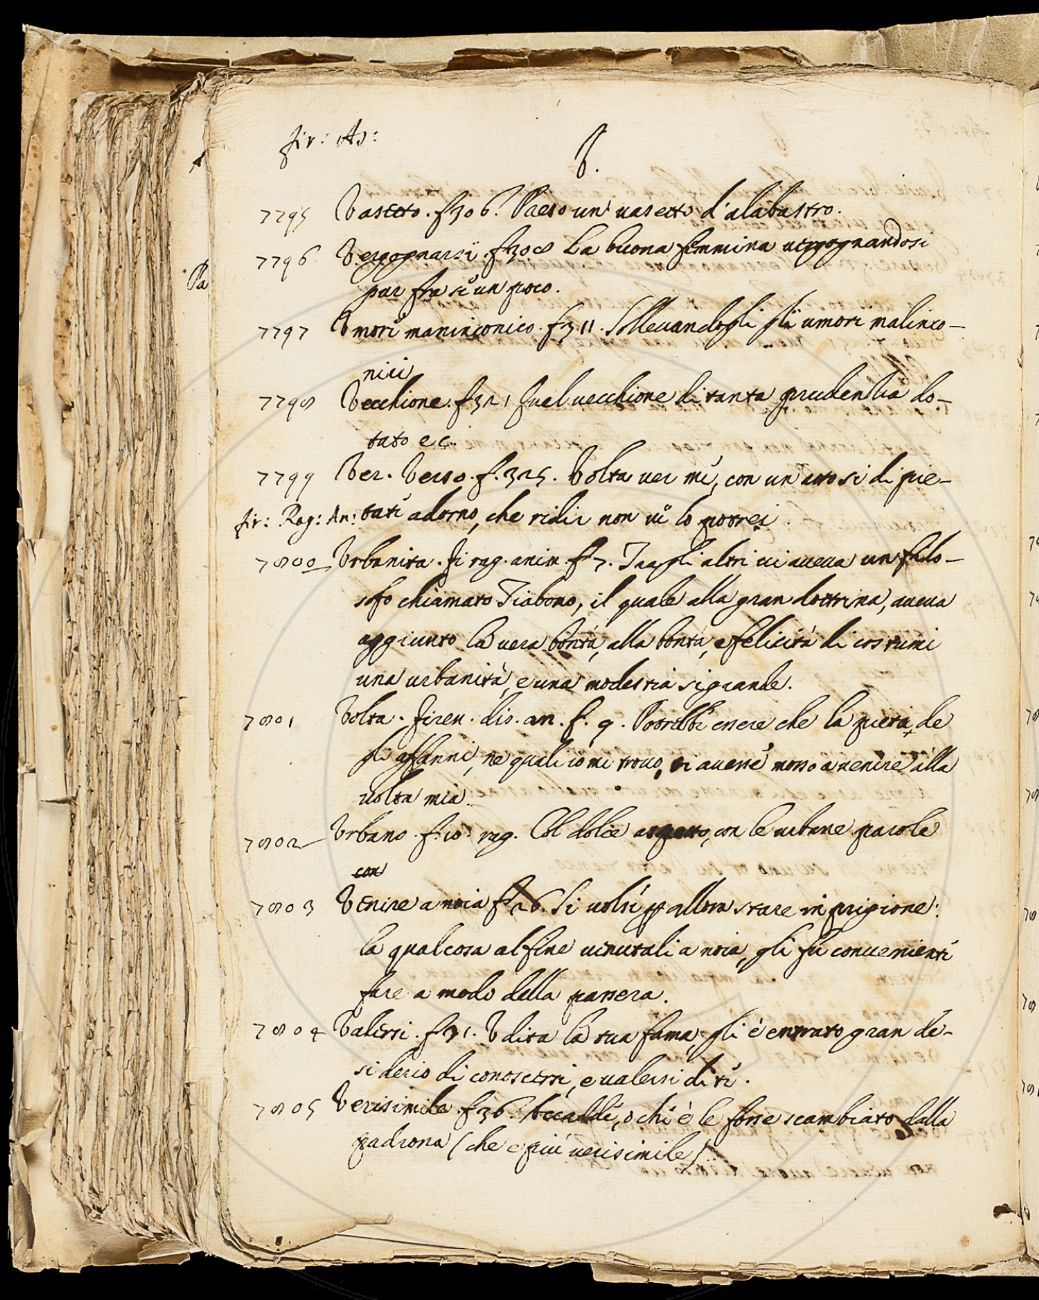 fir: As:
V.
7795 Vasetto. f306. Preso un vasetto d'alabastro.
7796 Vergognarsi. f308 La buona femmina vergognandosi
Pa
pur fra se un poco.
7797 Umori maninconico. f311. Sollevandogli gli umori malinco-
nici
7798 Vecchione. f321 quel vecchione di tanta prudentia do-
tato ec.
7799 Ver. Verso. f.325. Volta ver me, con un atto si di pie-
fir: Rag: An: tate adorno, che ridir non ve lo potrei
7800 Urbanita. fi rag. anim f7. Tra gli altri vi aveva un filo-
sofo chiamato Tiabono, il quale alla gran dottrina, aveva
aggiunto la vera bontà, alla bontà, e felicità di costumi
una urbanità, e una modestia si grande.
7801 Volta. firen. dis. an. f. 9. Potrebbe essere che la pietà, de
gli affanni, ne quali io mi trovo, vi avesse mosso a venire alla
volta mia
7802 Urbano. f10 rag. Col dolce aspetto, con le urbane parole
con
7803 Venire a noia f26. Si volse per allora stare in prigione:
la qual cosa al fine venutali a noia, gli fu conveniente
fare a modo della passera.
7804 Valersi. f31. Udita la tua fama, gli è entrato gran de-
siderio di conoscersi, e valersi di te.
7805 Verisimile. f36. Accaddè, o chi è le fosse scambiato dalla
padrona (che e più verisimile)